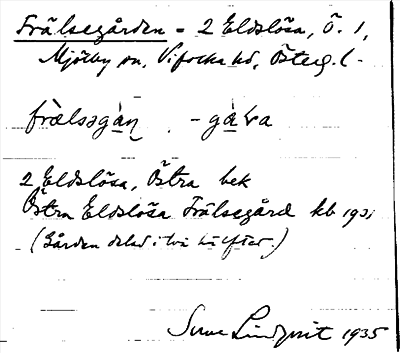 Frälsegården = 2 Eldslösa, Ö. 1,
Mjölby sn, Vifolka hd, Österg. l.
frälsəgàṇ, - gàra
2 Eldslösa, Östra bek
Östra Eldslösa Frälsegård kb 1931
(Gården delad i två hälfter.)
Sune Lindqvist 1935